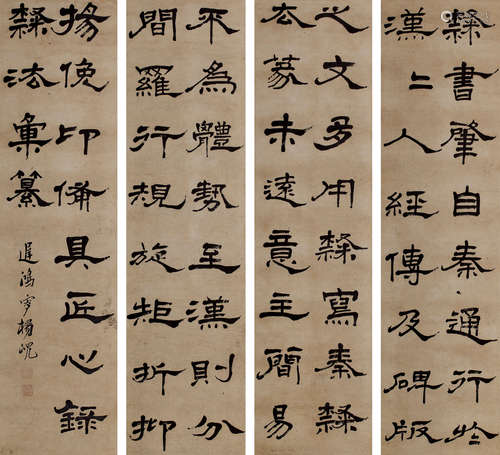 隸書肇自秦通行於
漢二人經傳及碑版
之文多用隸寫秦隸
去篆未遠意主簡易
平為體勢至漢則分
間羅行規旋矩折抑
揚俛印備具匠心錄
隸法彙纂
遲鴻軒楊峴